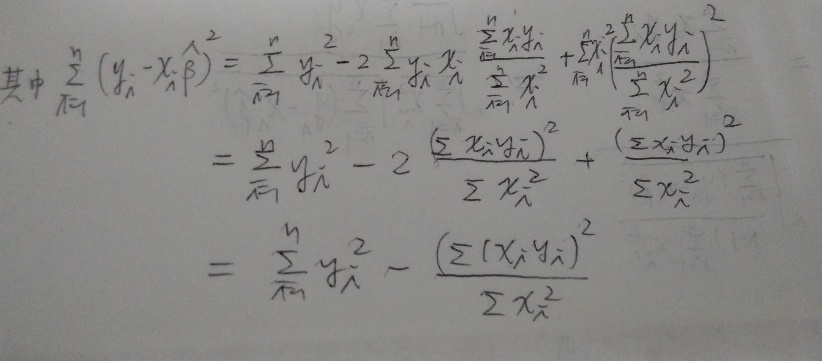 其中 $\sum_{i=1}^{n} (y_i - x_i \hat{\beta})^2 = \sum_{i=1}^{n} y_i^2 - 2 \sum_{i=1}^{n} y_i x_i \frac{\sum_{i=1}^{n} x_i y_i}{\sum_{i=1}^{n} x_i^2} + \sum_{i=1}^{n} x_i^2 \left( \frac{\sum_{i=1}^{n} x_i y_i}{\sum_{i=1}^{n} x_i^2} \right)^2$
$= \sum_{i=1}^{n} y_i^2 - 2 \frac{(\sum x_i y_i)^2}{\sum x_i^2} + \frac{(\sum x_i y_i)^2}{\sum x_i^2}$
$= \sum_{i=1}^{n} y_i^2 - \frac{(\sum (x_i y_i)^2}{\sum x_i^2}$